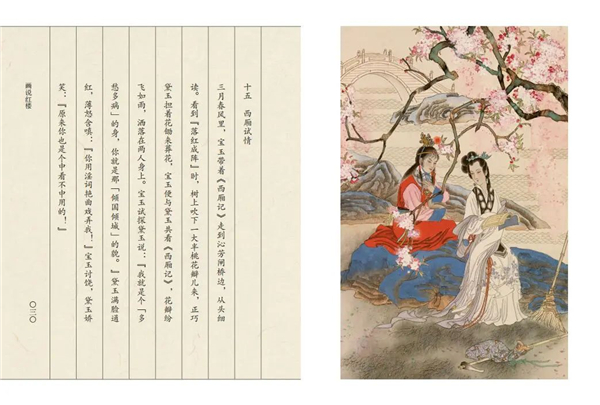 十五 西厢试情
三月春风里，宝玉带着《西厢记》走到沁芳闸桥边，从头细
读。看到『落红成阵』时，树上吹下一大半桃花瓣儿来，正巧
黛玉担着花锄来葬花，宝玉便与黛玉共看《西厢记》，花瓣纷
飞如雨，洒落在两人身上。宝玉试探黛玉说：『我就是个「多
愁多病」的身，你就是那「倾国倾城」的貌。』黛玉满脸通
红，薄怒含嗔：『你用淫词艳曲戏弄我！』宝玉讨饶，黛玉娇
笑：『原来你也是个中看不中用的！』
画说红楼
〇三〇